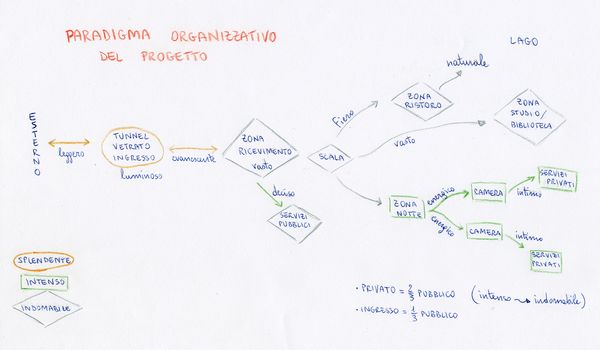 PARADIGMA ORGANIZZATIVO
DEL PROGETTO
LAGO
naturale
ESTERNO
leggero
TUNNEL
VETRATO
INGRESSO
luminoso
evanescente
ZONA
RICEVIMENTO
vasto
deciso
SERVIZI
PUBBLICI
SCALA
Fiero
ZONA
RISTORO
vasto
ZONA
STUDIO/
BIBLIOTECA
ZONA
NOTTE
energico
CAMERA
intenso
SERVIZI
PRIVATI
energico
CAMERA
intenso
SERVIZI
PRIVATI
SPLENDENTE
INTENSO
INDOMABILE
• PRIVATO = 2/3 PUBBLICO (intenso → indomabile)
• INGRESSO = 1/3 PUBBLICO